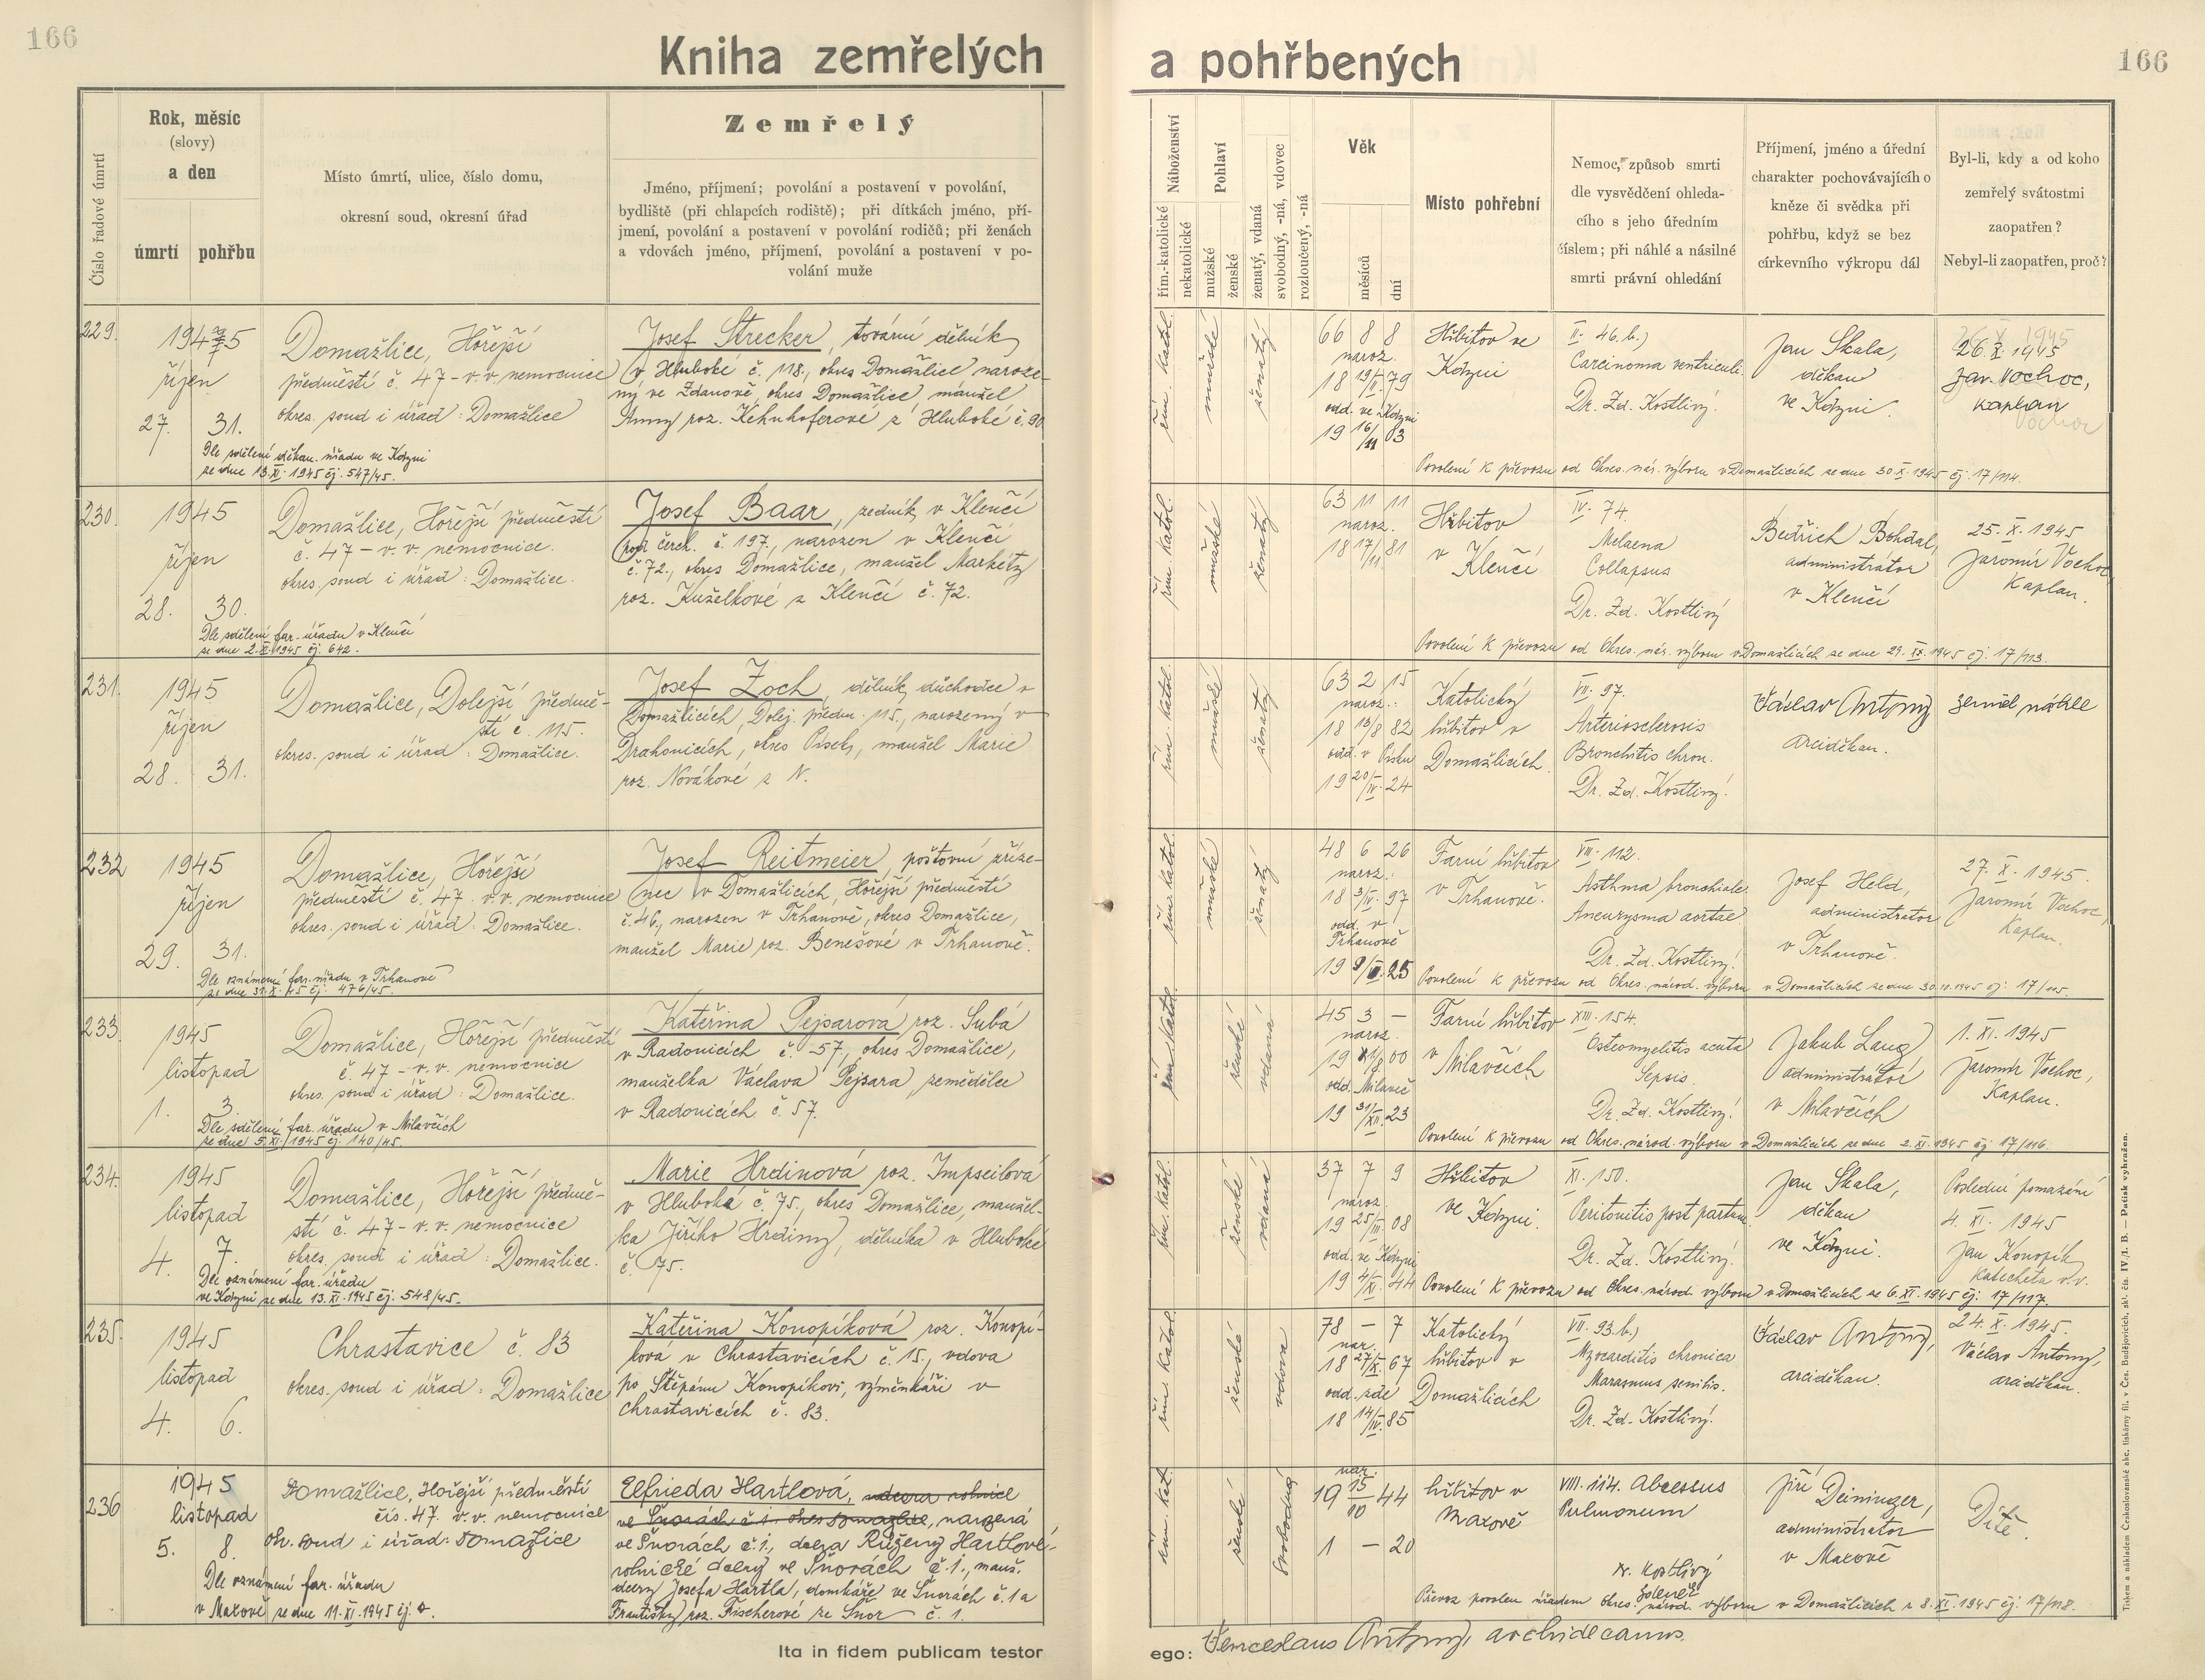 166
Kniha zemřelých
Číslo řadové úmrtí
Rok, měsíc
(slovy)
a den
úmrtí
pohřbu
Místo úmrtí, ulice, číslo domu,
okresní soud, okresní úřad
Zemřelý
Jméno, příjmení; povolání a postavení v povolání,
bydliště (při chlapcích rodiště); při dítkách jméno, pří-
jmení, povolání a postavení v povolání rodičů; při ženách
a vdovách jméno, příjmení, povolání a postavení v po-
volání muže
229.
1945
říjen
27. 31.
Dle sdělení děkan. úřadu ve Kdyni
ze dne 13.XI.1945 čj. 547/45.
Domažlice, Hořejší
předměstí č. 47 - v.v. nemocnice
okres. soud i úřad: Domažlice
Josef Strecker, tovární dělník
v Hluboké č. 118., okres Domažlice naroze-
ný ve Zdanově, okres Domažlice, manžel
Anny roz. Kehnhoferové z Hluboké č. 90
230.
1945
říjen
28. 30.
Dle sdělení far. úřadu v Klenčí
ze dne 2.XI.1945 čj. 642.
Domažlice, Hořejší předměstí
č. 47 - v.v. nemocnice.
okres. soud i úřad: Domažlice.
Josef Baar, zedník v Klenčí
pod čerch. č. 197., narozen v Klenčí
č. 72., okres Domažlice, manžel Markéty
roz. Kuželkové z Klenčí č. 72.
231.
1945
říjen
28. 31.
Domažlice, Dolejší předmě-
stí č. 115.
okres. soud i úřad: Domažlice.
Josef Zoch, dělník, důchodce v
Domažlicích, Dolej. předm. 115., narozený v
Drahonicích, okres Písek, manžel Marie
roz. Novákové z N.
232
1945
říjen
29. 31.
Dle oznámení far. úřadu v Trhanově
ze dne 31.X.45 čj. 476/45.
Domažlice, Hořejší
předměstí č. 47 v.v. nemocnice
okres. soud i úřad: Domažlice.
Josef Reitmeier, poštovní zříze-
nec v Domažlicích, Hořejší předměstí
č. 46, narozen v Trhanově, okres Domažlice,
manžel Marie roz. Benešové v Trhanově.
233.
1945
listopad
1. 3.
Dle sdělení far. úřadu v Milavčích
ze dne 5.XI.1945 čj. 140/45.
Domažlice, Hořejší předměstí
č. 47 - v.v. nemocnice
okres. soud i úřad: Domažlice.
Kateřina Pejsarová roz. Subá
v Radonicích č. 57., okres Domažlice,
manželka Václava Pejsara, zemědělce
v Radonicích č. 57.
234.
1945
listopad
4. 7.
Dle oznámení far. úřadu
ve Kdyni ze dne 13.XI.1945 čj. 548/45.
Domažlice, Hořejší předmě-
stí č. 47 - v.v. nemocnice
okres. soud i úřad: Domažlice.
Marie Hrdinová roz. Impseilová
v Hluboké č. 75., okres Domažlice, manžel-
ka Jiřího Hrdiny, dělníka v Hluboké
č. 75.
235.
1945
listopad
4. 6.
Chrastavice č. 83
okres. soud i úřad: Domažlice
Kateřina Konopíková roz. Konopí-
ková v Chrastavicích č. 15., vdova
po Štěpánu Konopíkovi, výměnkáři v
Chrastavicích č. 83.
236
1945
listopad
5. 8.
Dle oznámení far. úřadu
v Maxově ze dne 11.XI.1945 čj.
Domažlice, Hořejší předměstí
čís. 47. v.v. nemocnice
ok. soud i úřad: Domažlice
Elfrieda Hartlová, dcera rolnice
ve Šnorách č. 1. okres Domažlice, narozená
ve Šnorách č. 1., dcera Růženy Hartlové,
rolnické dcery ve Šnorách č. 1., manž.
dcery Josefa Hartla, domkáře ve Šnorách č. 1 a
Františky roz. Fischerové ze Šnor č. 1.
Ita in fidem publicam testor
a pohřbených
166
Náboženství
řím.-katolické
nekatolické
Pohlaví
mužské
ženské
ženatý, vdaná
svobodný, -ná, vdovec
rozloučený, -ná
Věk
měsíců
dní
Místo pohřební
Nemoc, způsob smrti
dle vysvědčení ohleda-
cího s jeho úředním
číslem; při náhlé a násilné
smrti právní ohledání
Příjmení, jméno a úřední
charakter pochovávajícího
kněze či svědka při
pohřbu, když se bez
církevního výkropu dál
Byl-li, kdy a od koho
zemřelý svátostmi
zaopatřen?
Nebyl-li zaopatřen, proč?
řím. katol.
mužské
ženatý
66 8 8
naroz.
18 19/II. 79
odd. ve Kdyni
19 16/11 03
Hřbitov ve
Kdyni
II. 46.b.)
Carcinoma ventriculi.
Dr. Zd. Kostlivý.
Jan Skala,
děkan
ve Kdyni.
26.X.1945
Jar. Vochoc,
kaplan
Povolení k převozu od Okres. nár. výboru v Domažlicích ze dne 30.X.1945 čj. 17/114.
řím. katol.
mužské
ženatý
63 11 11
naroz.
18 17/11. 81
Hřbitov
v Klenčí
IV. 74.
Melaena
Collapsus
Dr. Zd. Kostlivý
Bedřich Bohdal,
administrátor
v Klenčí
25.X.1945
Jaromír Vochoc
Kaplan.
Povolení k převozu od Okres. nár. výboru v Domažlicích ze dne 29.X.1945 čj. 17/113.
řím. katol.
mužské
ženatý
63 2 15
naroz.:
18 13/8 82
odd. v Písku
19 20/IV. 24
Katolický
hřbitov v
Domažlicích.
VII. 97.
Arteriosclerosis
Bronchitis chron.
Dr. Zd. Kostlivý.
Václav Antony
arciděkan.
zemřel náhle
řím. katol.
mužské
ženatý
48 6 26
naroz.:
18 3/IV. 97
odd. v
Trhanově
19 25
Farní hřbitov
v Trhanově.
VIII. 112.
Asthma bronchiale.
Aneurysma aortae
Dr. Zd. Kostlivý.
Josef Held,
administrator
v Trhanově.
27.X.1945.
Jaromír Vochoc,
Kaplan.
Povolení k převozu od Okres. národ. výboru v Domažlicích ze dne 30.10.1945 čj. 17/115.
řím. katol.
ženské
vdaná
45 3 —
naroz.
19 00
odd. Milavče
19 31/XII. 23
Farní hřbitov
v
Milavčích
XIII. 154.
Osteomyelitis acuta
Sepsis.
Dr. Zd. Kostlivý.
Jakub Lang
administrátor
v Milavčích
1.XI.1945
Jaromír Vochoc,
Kaplan.
Povolení k převozu od Okres. národ. výboru v Domažlicích ze dne 2.XI.1945 čj. 17/116.
řím. katol.
ženské
vdaná
37 7 9
naroz.
19 25/III. 08
odd. ve Kdyni
19 4/XI. 44
Hřbitov
ve Kdyni.
XI. 150.
Peritonitis post partum
Dr. Zd. Kostlivý.
Jan Skala,
děkan
ve Kdyni.
Poslední pomazání
4.XI.1945
Jan Konopík
katecheta v.v.
Povolení k převozu od Okres. národ. výboru v Domažlicích ze 6.XI.1945 čj. 17/117.
řím. katol.
ženské
vdova
78 — 7
nar.
18 27/X. 67
odd. zde
18 14/IV. 85
Katolický
hřbitov v
Domažlicích
VII. 93.b.)
Myocarditis chronica
Marasmus senilis.
Dr. Zd. Kostlivý.
Václav Antony,
arciděkan.
24.X.1945.
Václav Antony,
arciděkan.
řím. kat.
ženské
svobodná
nar.
19 15/10 44
1 — 20
hřbitov v
Maxově
VIII. 114. Abcessus
Pulmonum
Dr. Kostlivý
Zdeněk
Jiří Deininger,
administrator
v Maxově
Dítě.
Převoz povolen úřadem okres. národ. výboru v Domažlicích z 8.XI.1945 čj. 17/118.
ego: Venceslaus Antony, archidecanus.
Tiskem a nákladem Českoslovanské akc. tiskárny fil. v Čes. Budějovicích, skl. čís. IV/I. B — Patisk vyhražen.